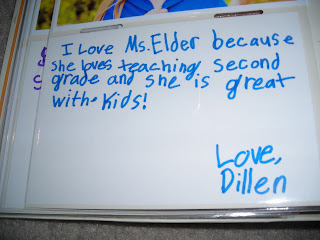 I Love Ms. Elder because
she loves teaching second
grade and she is great
with kids!
Love,
Dillen